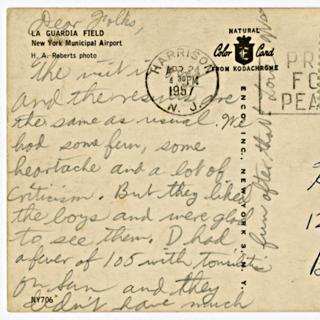 Dear Folks,
LA GUARDIA FIELD
New York Municipal Airport
H. A. Roberts photo
NATURAL
Color Card
FROM KODACHROME
HARRISON
APR 24
4 30 PM
1957
N. J.
PR
FO
PEA
the visit is
and the results are
the same as usual. We
had some fun, some
heartache and a lot of
criticism. But they liked
the boys and were glad
to see them. D had
a fever of 105 with tonsilitis
on Sun and they
didn't have much
fun after that!
ENCO INC., NEW YORK 3, N. Y.
NY706
12